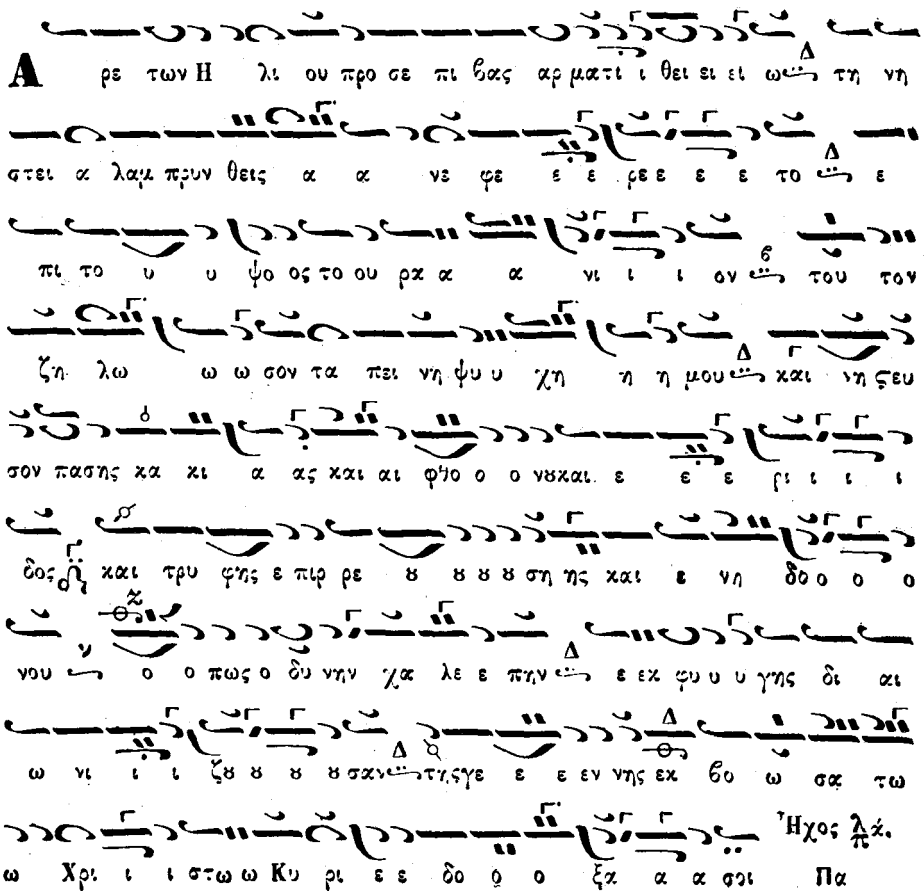 Α ρε των Η λι ου προ σε πι βας αρ ματι ι θει ει ει ω Δ τη νη
στει α λαμ πρυν θεις α α νε φε ε ε ρε ε ε ε το Δ ε
πι το υ υ ψο ος το ου ρα α α νι ι ι ον β του τον
ζη λω ω ω σον τα πει νη ψυ υ χη η η μου Δ και νη ζευ
σον πασης κα κι α ας και αι φθο ο ο νȣ και ε ε ε ρι ι ι ι
δος και τρυ φης ε πιρ ρε ȣ ȣ ȣ ȣ ση ης και ε νη δο ο ο ο
νου ν ο ο πως ο δυ νην χα λε ε πην Δ ε εκ φυ υ υ γης δι αι
ω νι ι ι ζȣ ȣ ȣ ȣ σαν Δ της γε ε ε εν νης εκ βο ω σα τω
ω Χρι ι ι στω ω Κυ ρι ε ε δο ο ο ξα α α σοι Ἦχος λ π ά. Πα